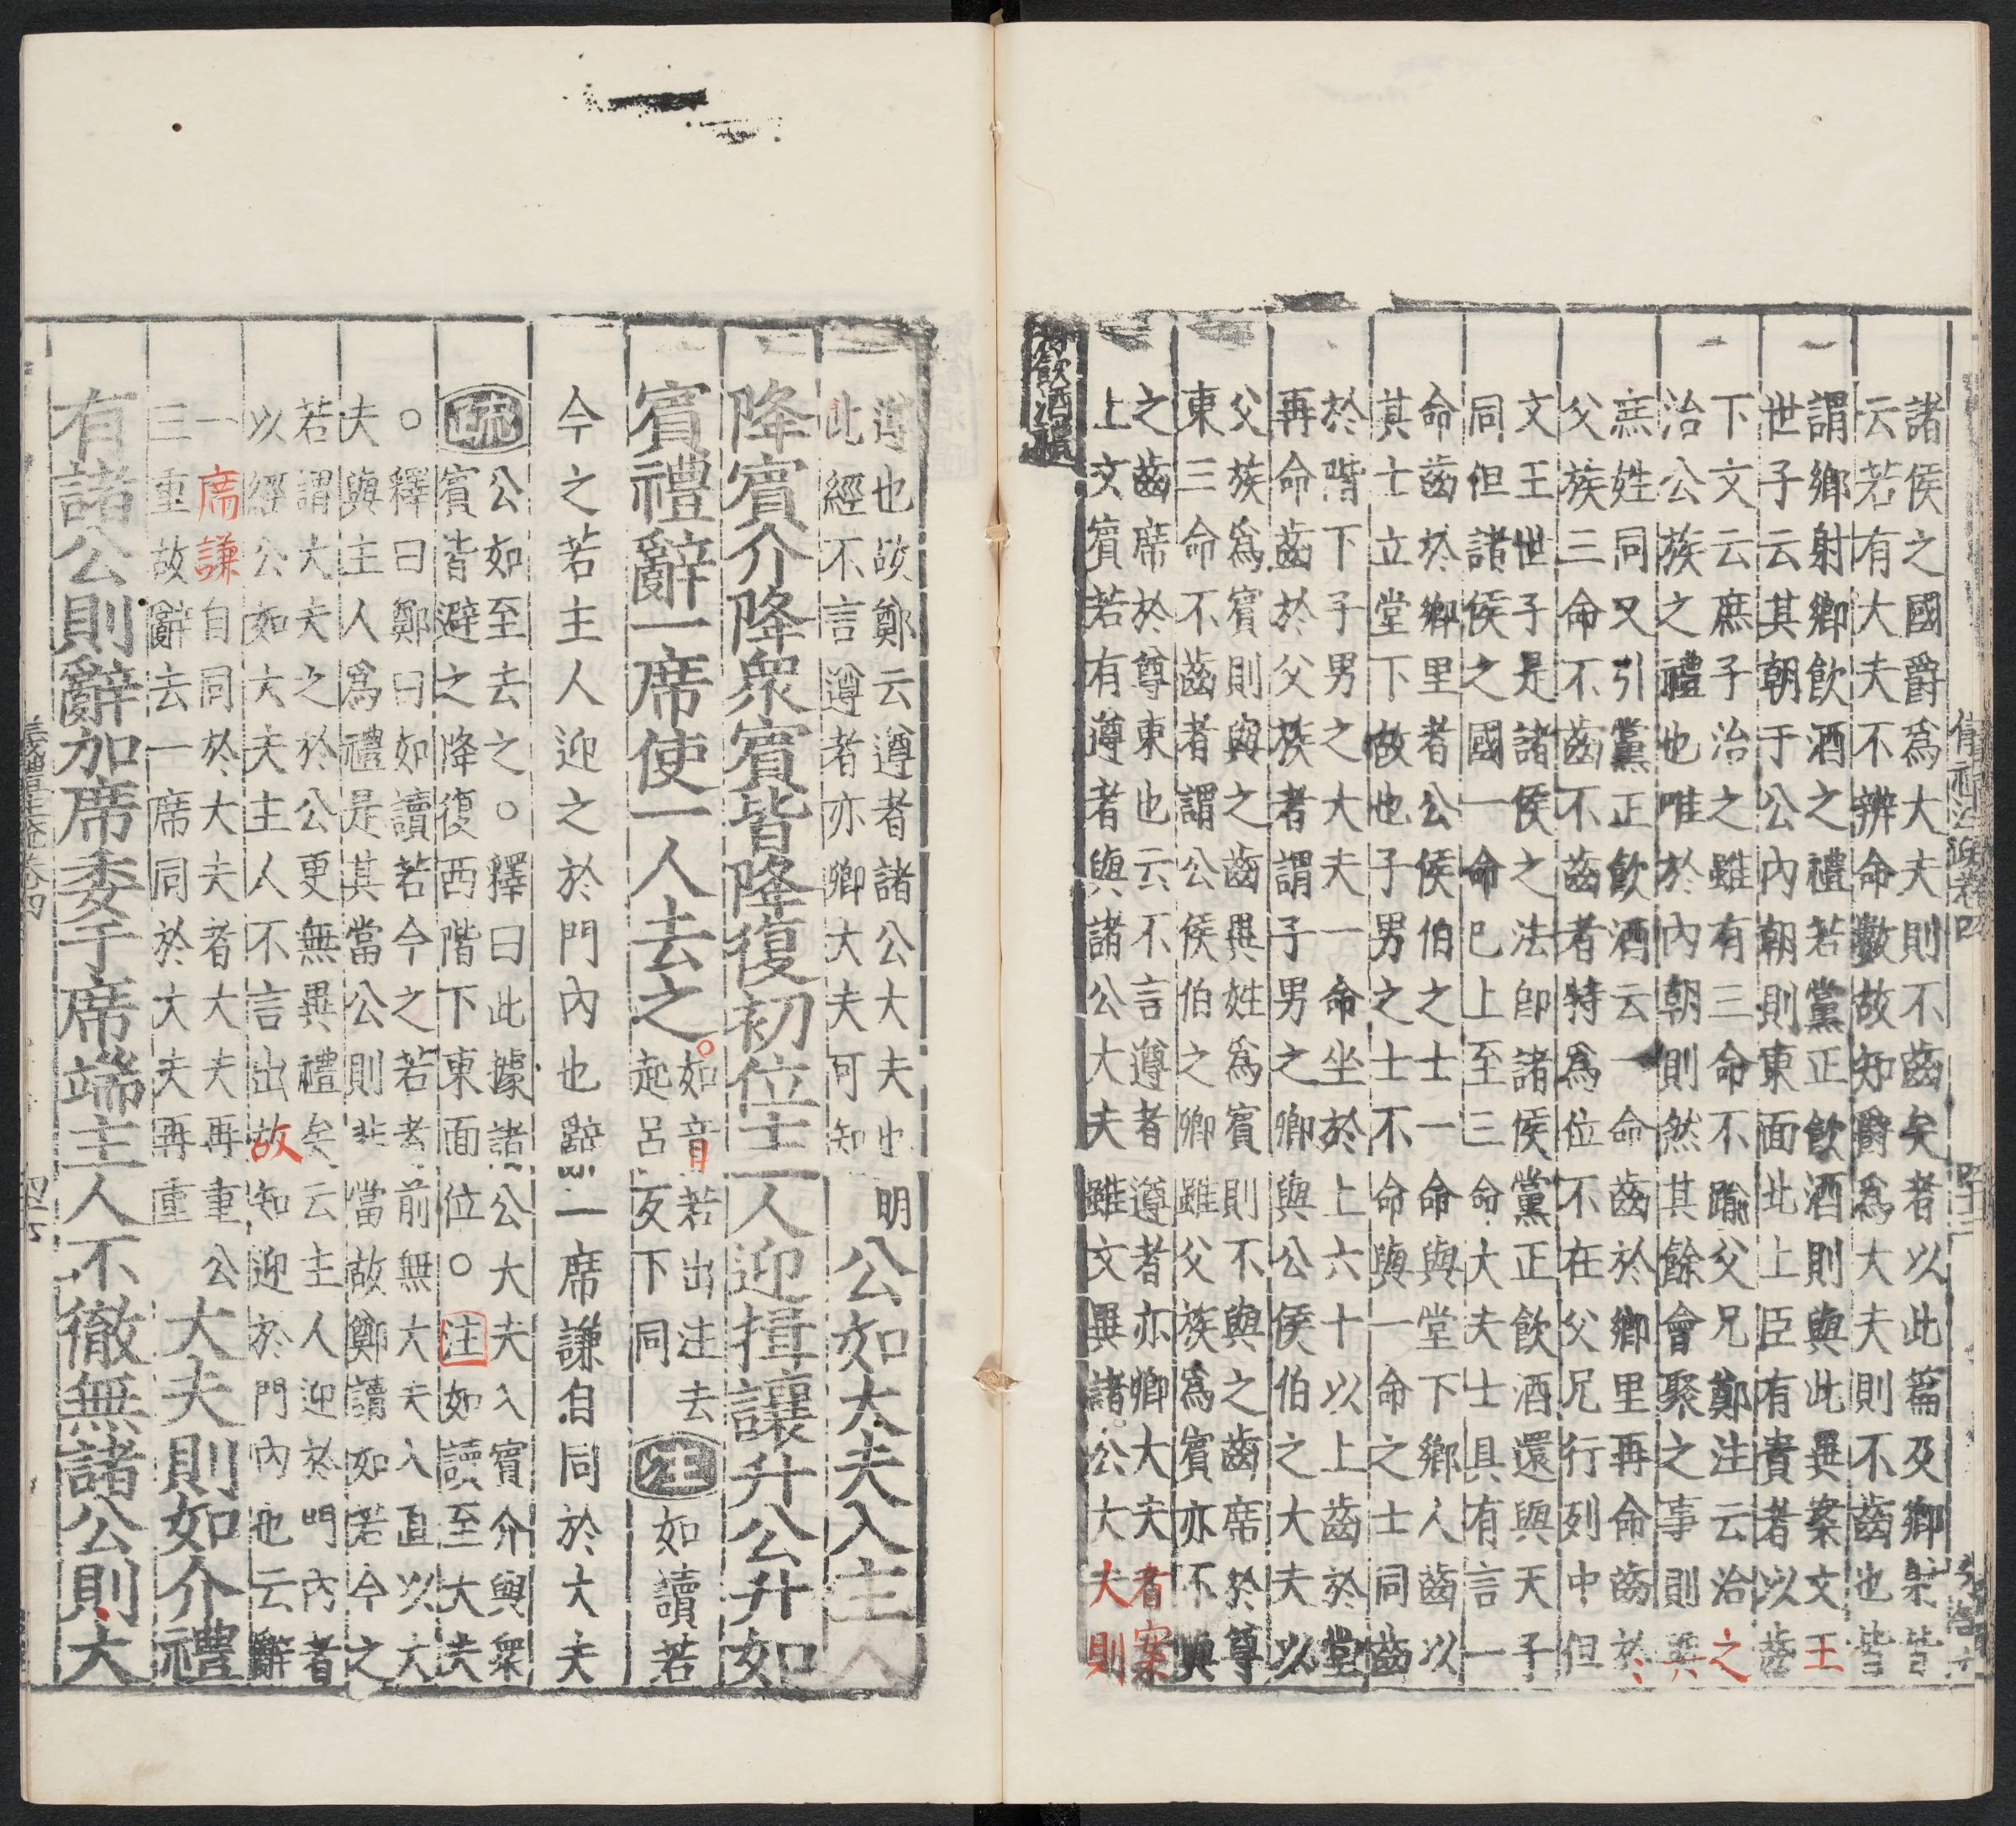 諸侯之國爵爲大夫則不齒矣者以此篇及鄉射皆
云若有大夫不辨命數故知爵爲大夫則不齒也皆
謂鄉射鄉飲酒之禮若黨正飲酒則與此異案文王
世子云其朝于公內朝則東面北上臣有貴者以齒
下文云庶子治之雖有三命不踰父兄鄭注云治之
治公族之禮也唯於內朝則然其餘會聚之事則與
庶姓同又引黨正飲酒云一命齒於鄉里再命齒於
父族三命不齒不齒者特爲位不在父兄行列中但
文王世子是諸侯之法卽諸侯黨正飲酒還與天子
同但諸侯之國一命巳上至三命大夫士具有言一
命齒於鄉里者公侯伯之士一命與堂下鄉人齒以
其士立堂下故也子男之士不命與一命之士同齒
於階下子男之大夫一命坐於上六十以上齒於堂
再命齒於父族者謂子男之卿與公侯伯之大夫以
父族爲賓則與之齒異姓爲賓則不與之齒席於尊
東三命不齒者謂公侯伯之卿雖父族爲賓亦不與
之齒席於尊東也云不言遵者遵者亦卿大夫者案
上文賓若有遵者與諸公大夫雖文異諸公大夫則
鄉飲酒禮
遵也故鄭云遵者諸公大夫也明
此經不言遵者亦卿大夫可知
公如大夫入主人
降賓介降眾賓皆降復初位主人迎揖讓升公升如
賓禮辭一席使一人去之
如音若出注去
起呂反下同
注如讀若
今之若主人迎之於門內也辭一席謙自同於大夫
疏公如至去之○釋曰此據諸公大夫入賓介與眾
賓皆避之降復西階下東面位○注如讀至大夫
○釋曰鄭曰如讀若今之若者前無大夫入直以大
夫與主人爲禮是其當公則非當故鄭讀如若今之
若謂大夫之於公更無異禮矣云主人迎於門內者
以經公如大夫主人不言出故知迎於門內也云辭
一席謙自同於大夫者大夫再重公
三重故辭去一席同於大夫再重
大夫則如介禮
有諸公則辭加席委于席端主人不徹無諸公則大